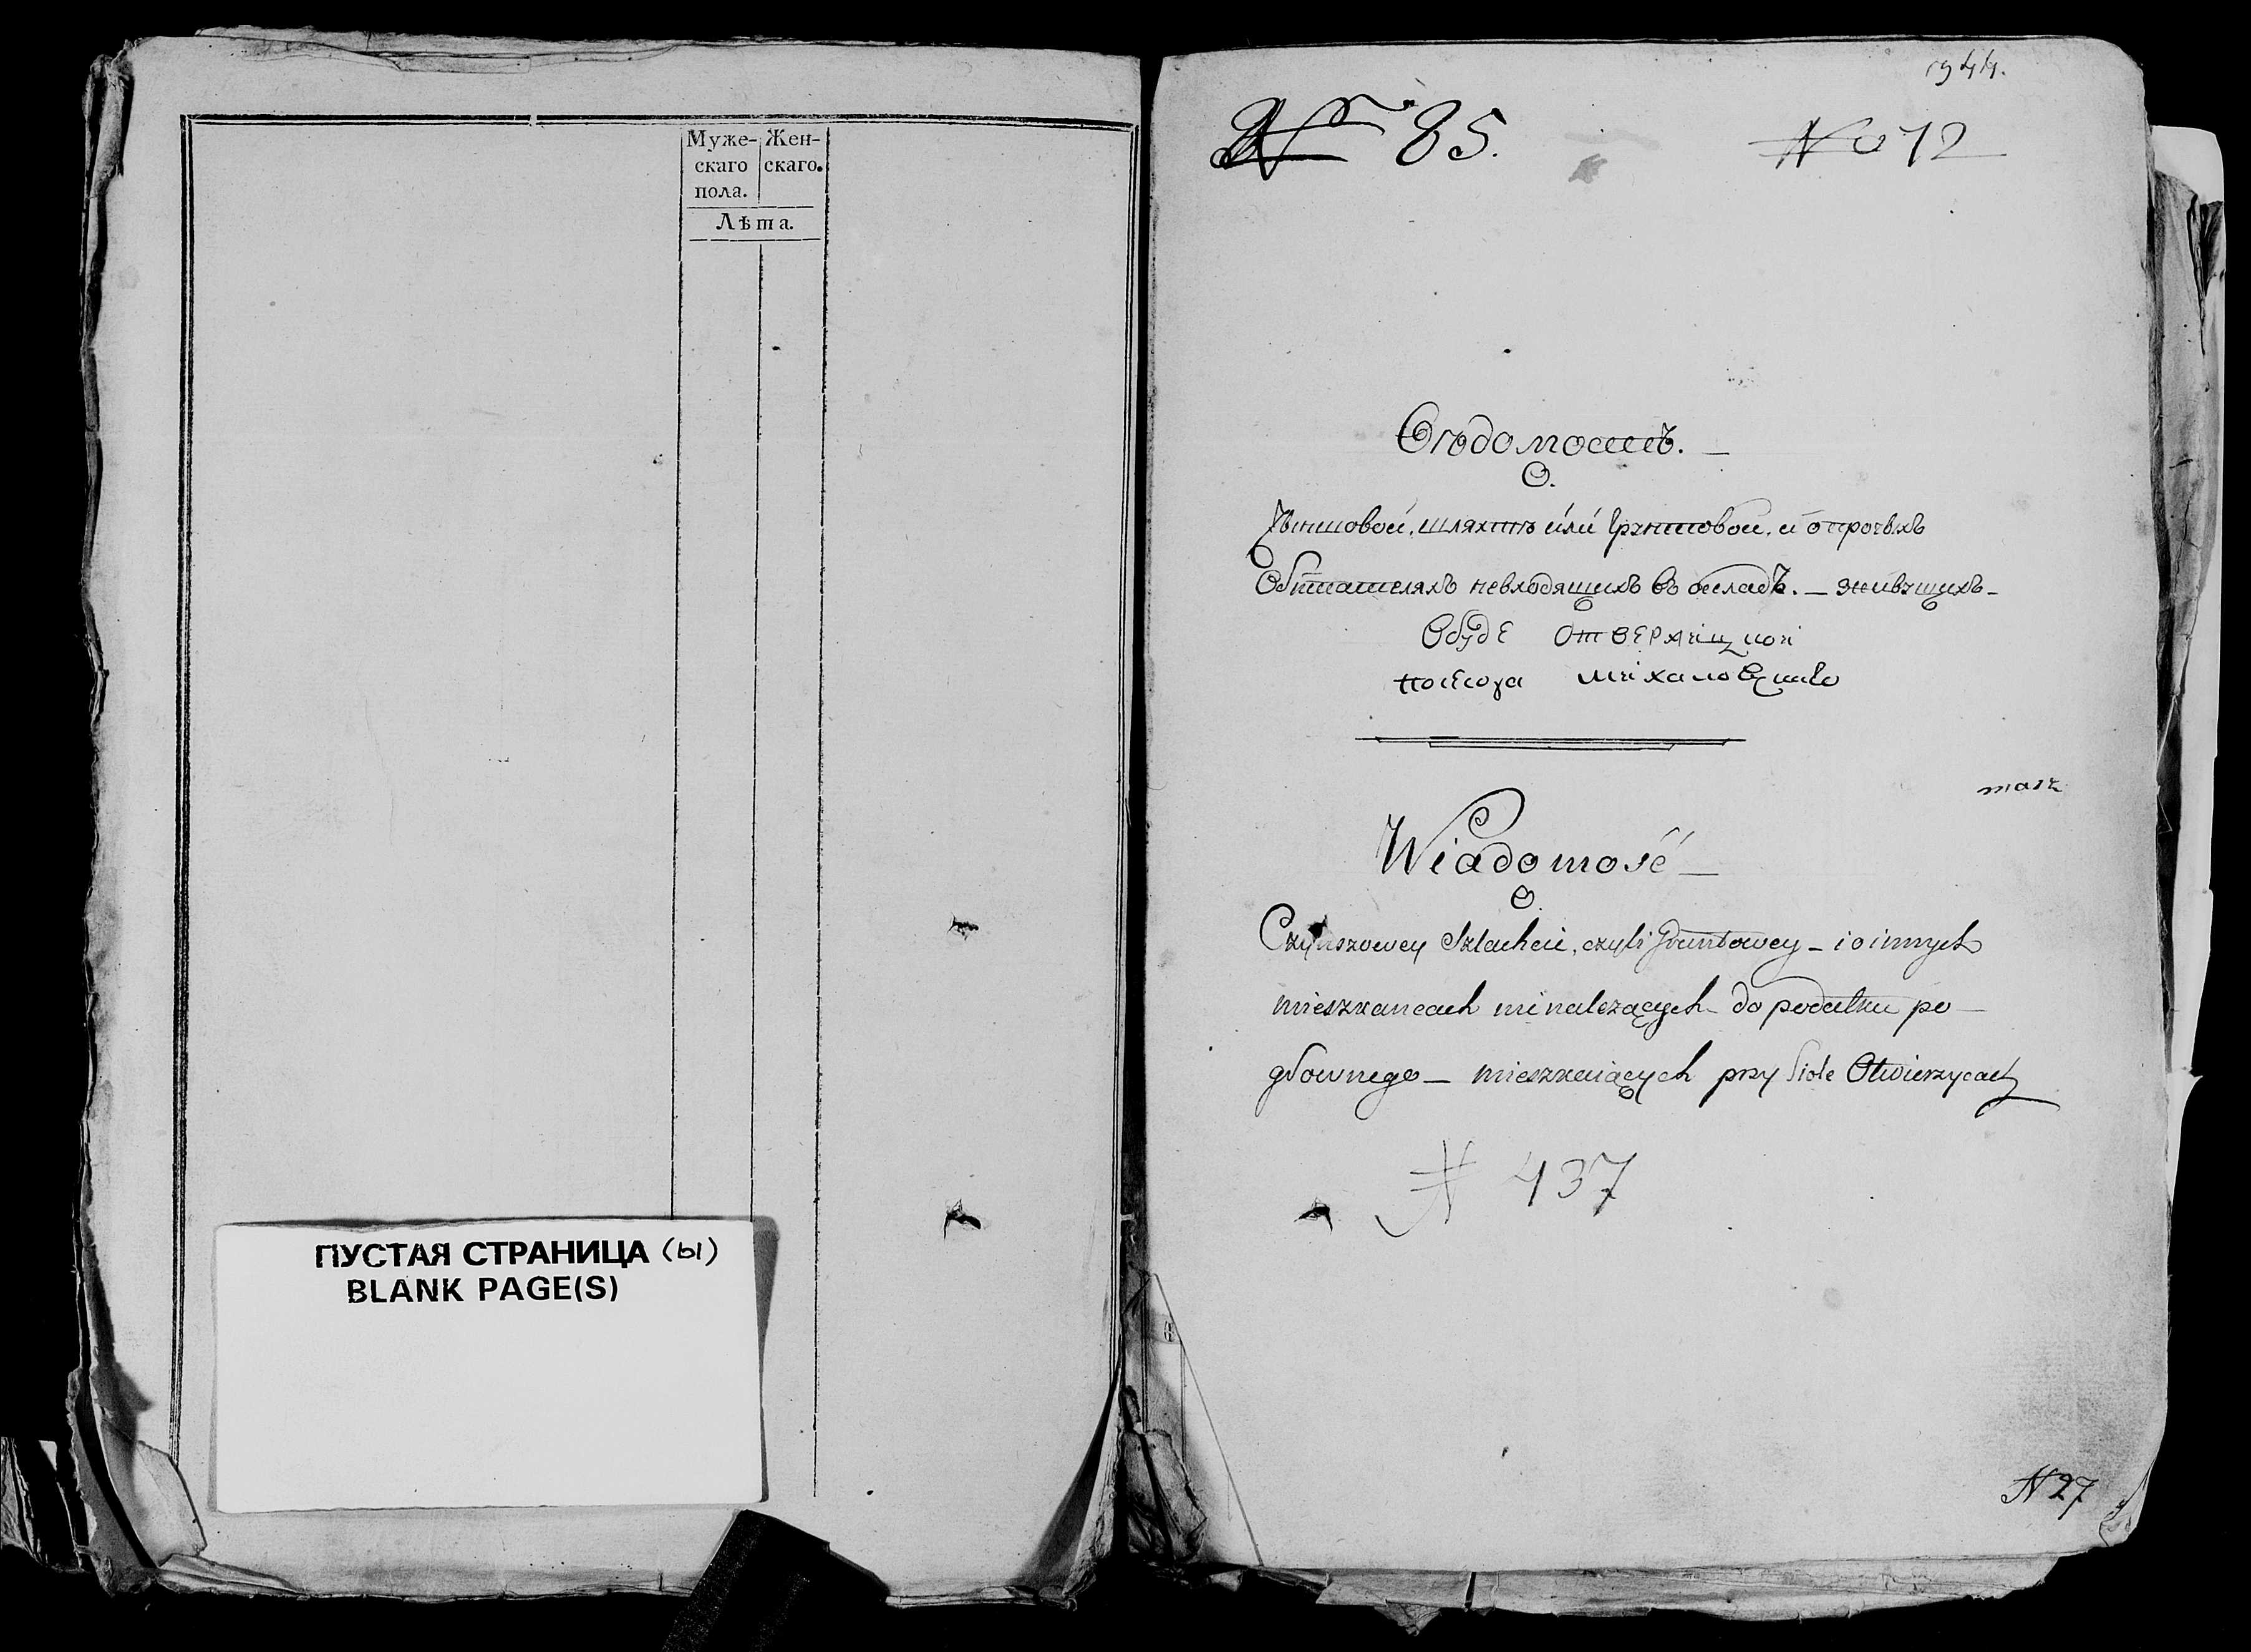 Муже-
скаго
пола.
Жен-
скаго.
Лѣта.
ПУСТАЯ СТРАНИЦА (ы)
BLANK PAGE(S)
1944.
№ 85.
No 12
Вѣдомость.
О.
Чиншовой, шляхтѣ или грунтовой, и опрочихъ
Обитателяхъ невходящихъ во окладъ. — живущихъ —
marz
Wiadomość —
O.
Czynszowey Szlachcie, czyli Gruntowey — i o innych
mieszkancach nie nalezących do podatku po —
głownego — mieszkaiących przy Siole Otwierzycach
№ 437
N 27